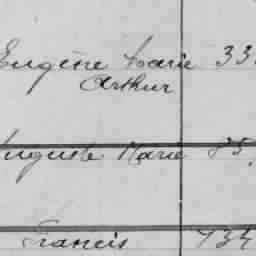 Eugène Marie 33
Arthur
Auguste Marie 85
Francis 734